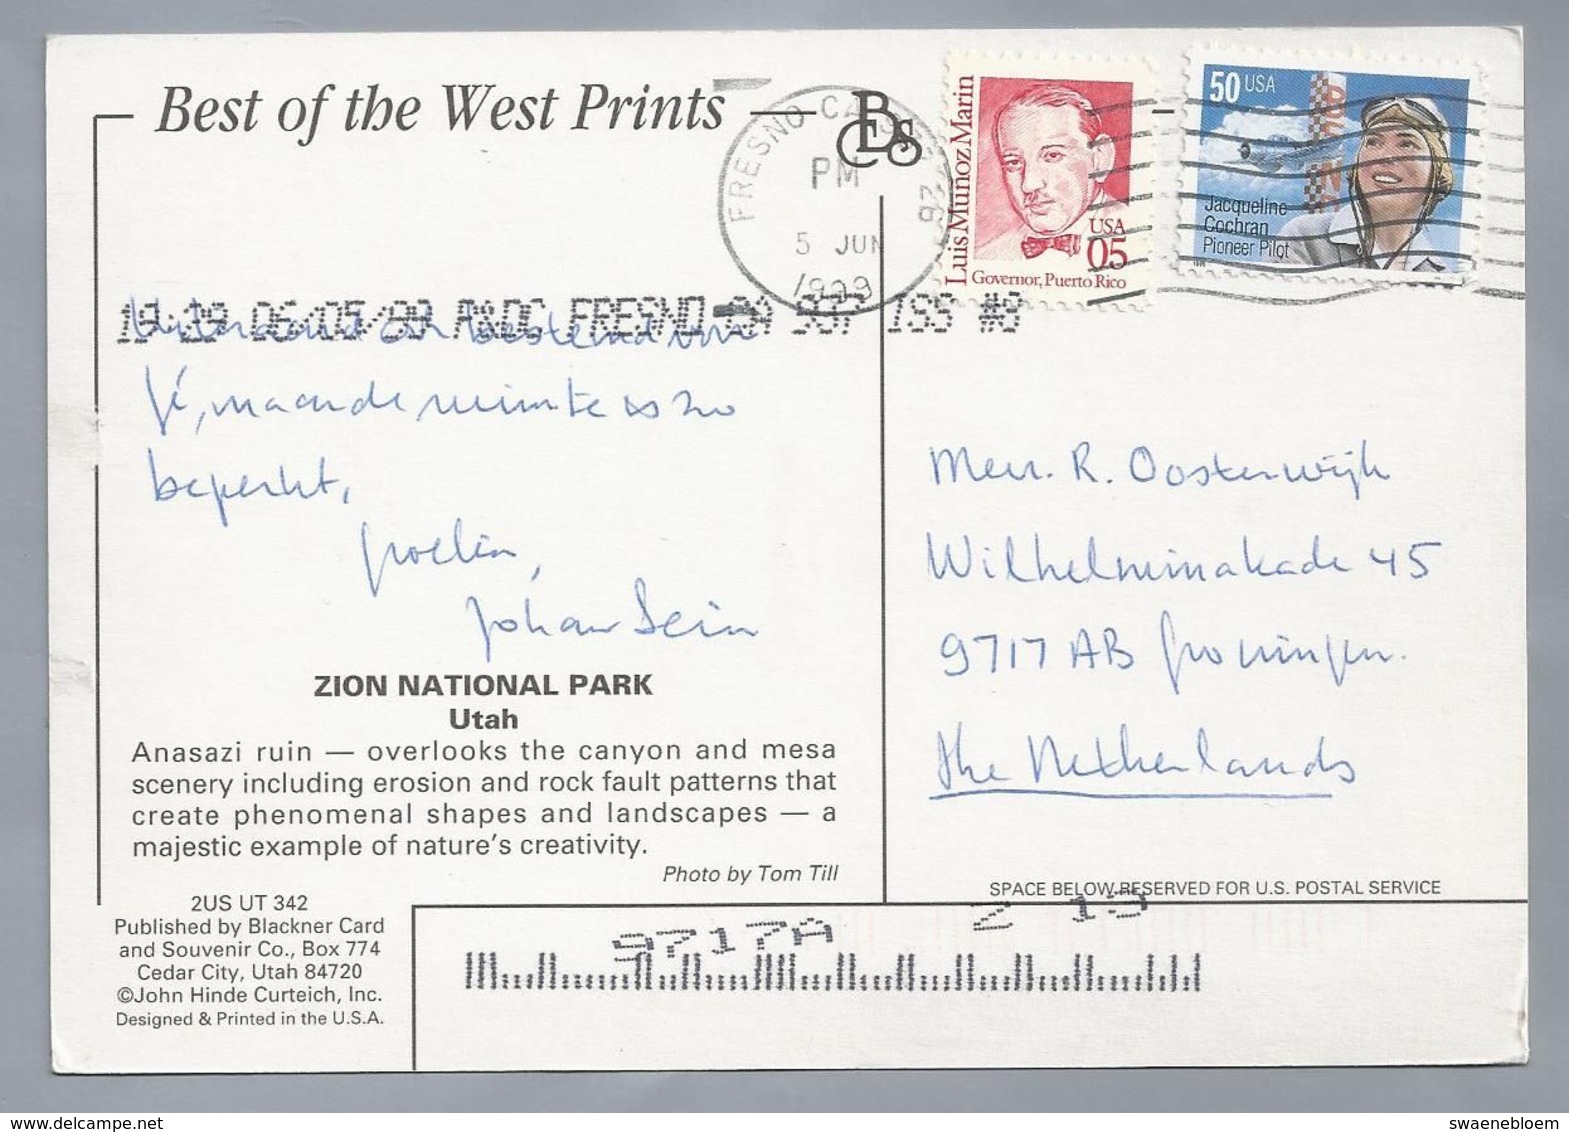 Best of the West Prints
BCS
FRESNO CA
PM
5 JUN
1999
Luis Muñoz Marin
USA
05
Governor, Puerto Rico
50 USA
Jacqueline
Cochran
Pioneer Pilot
06/05/99 P&DC FRESNO CA ISS #8
maar de ruimte is zo
beperkt,
groeten,
Johan
Mevr. R. Oosterwijk
Wilhelminakade 45
9717 AB Groningen.
the Netherlands
ZION NATIONAL PARK
Utah
Anasazi ruin — overlooks the canyon and mesa
scenery including erosion and rock fault patterns that
create phenomenal shapes and landscapes — a
majestic example of nature's creativity.
Photo by Tom Till
2US UT 342
Published by Blackner Card
and Souvenir Co., Box 774
Cedar City, Utah 84720
©John Hinde Curteich, Inc.
Designed & Printed in the U.S.A.
SPACE BELOW RESERVED FOR U.S. POSTAL SERVICE
9717A Z 19
www.delcampe.net
swaenebloem